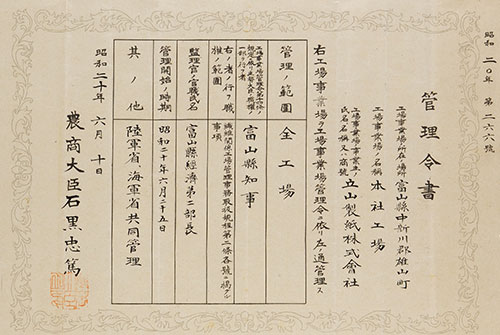 昭和二〇年第二六號
管理令書
工場事業場ノ所在ノ場所 富山縣中新川郡雄山町
工場事業場ノ名稱 本社工場
工場事業場事業主ノ氏名、名稱又ハ商號 立山製紙株式會社
右工場事業場ヲ工場事業場管理令ニ依リ左ノ通管理ス
管理ノ範圍 全工場
富山縣知事
右ノ者ノ行フ職權ノ範圍 纖維關係工場管理事務取扱規程第二條各號ニ揭グル事項
監理官ノ官職氏名 富山縣經濟第二部長
管理開始ノ時期 昭和二十年六月二十五日
其ノ他 陸軍省海軍省共同管理
昭和二十年六月十日
農商大臣石黑忠篤